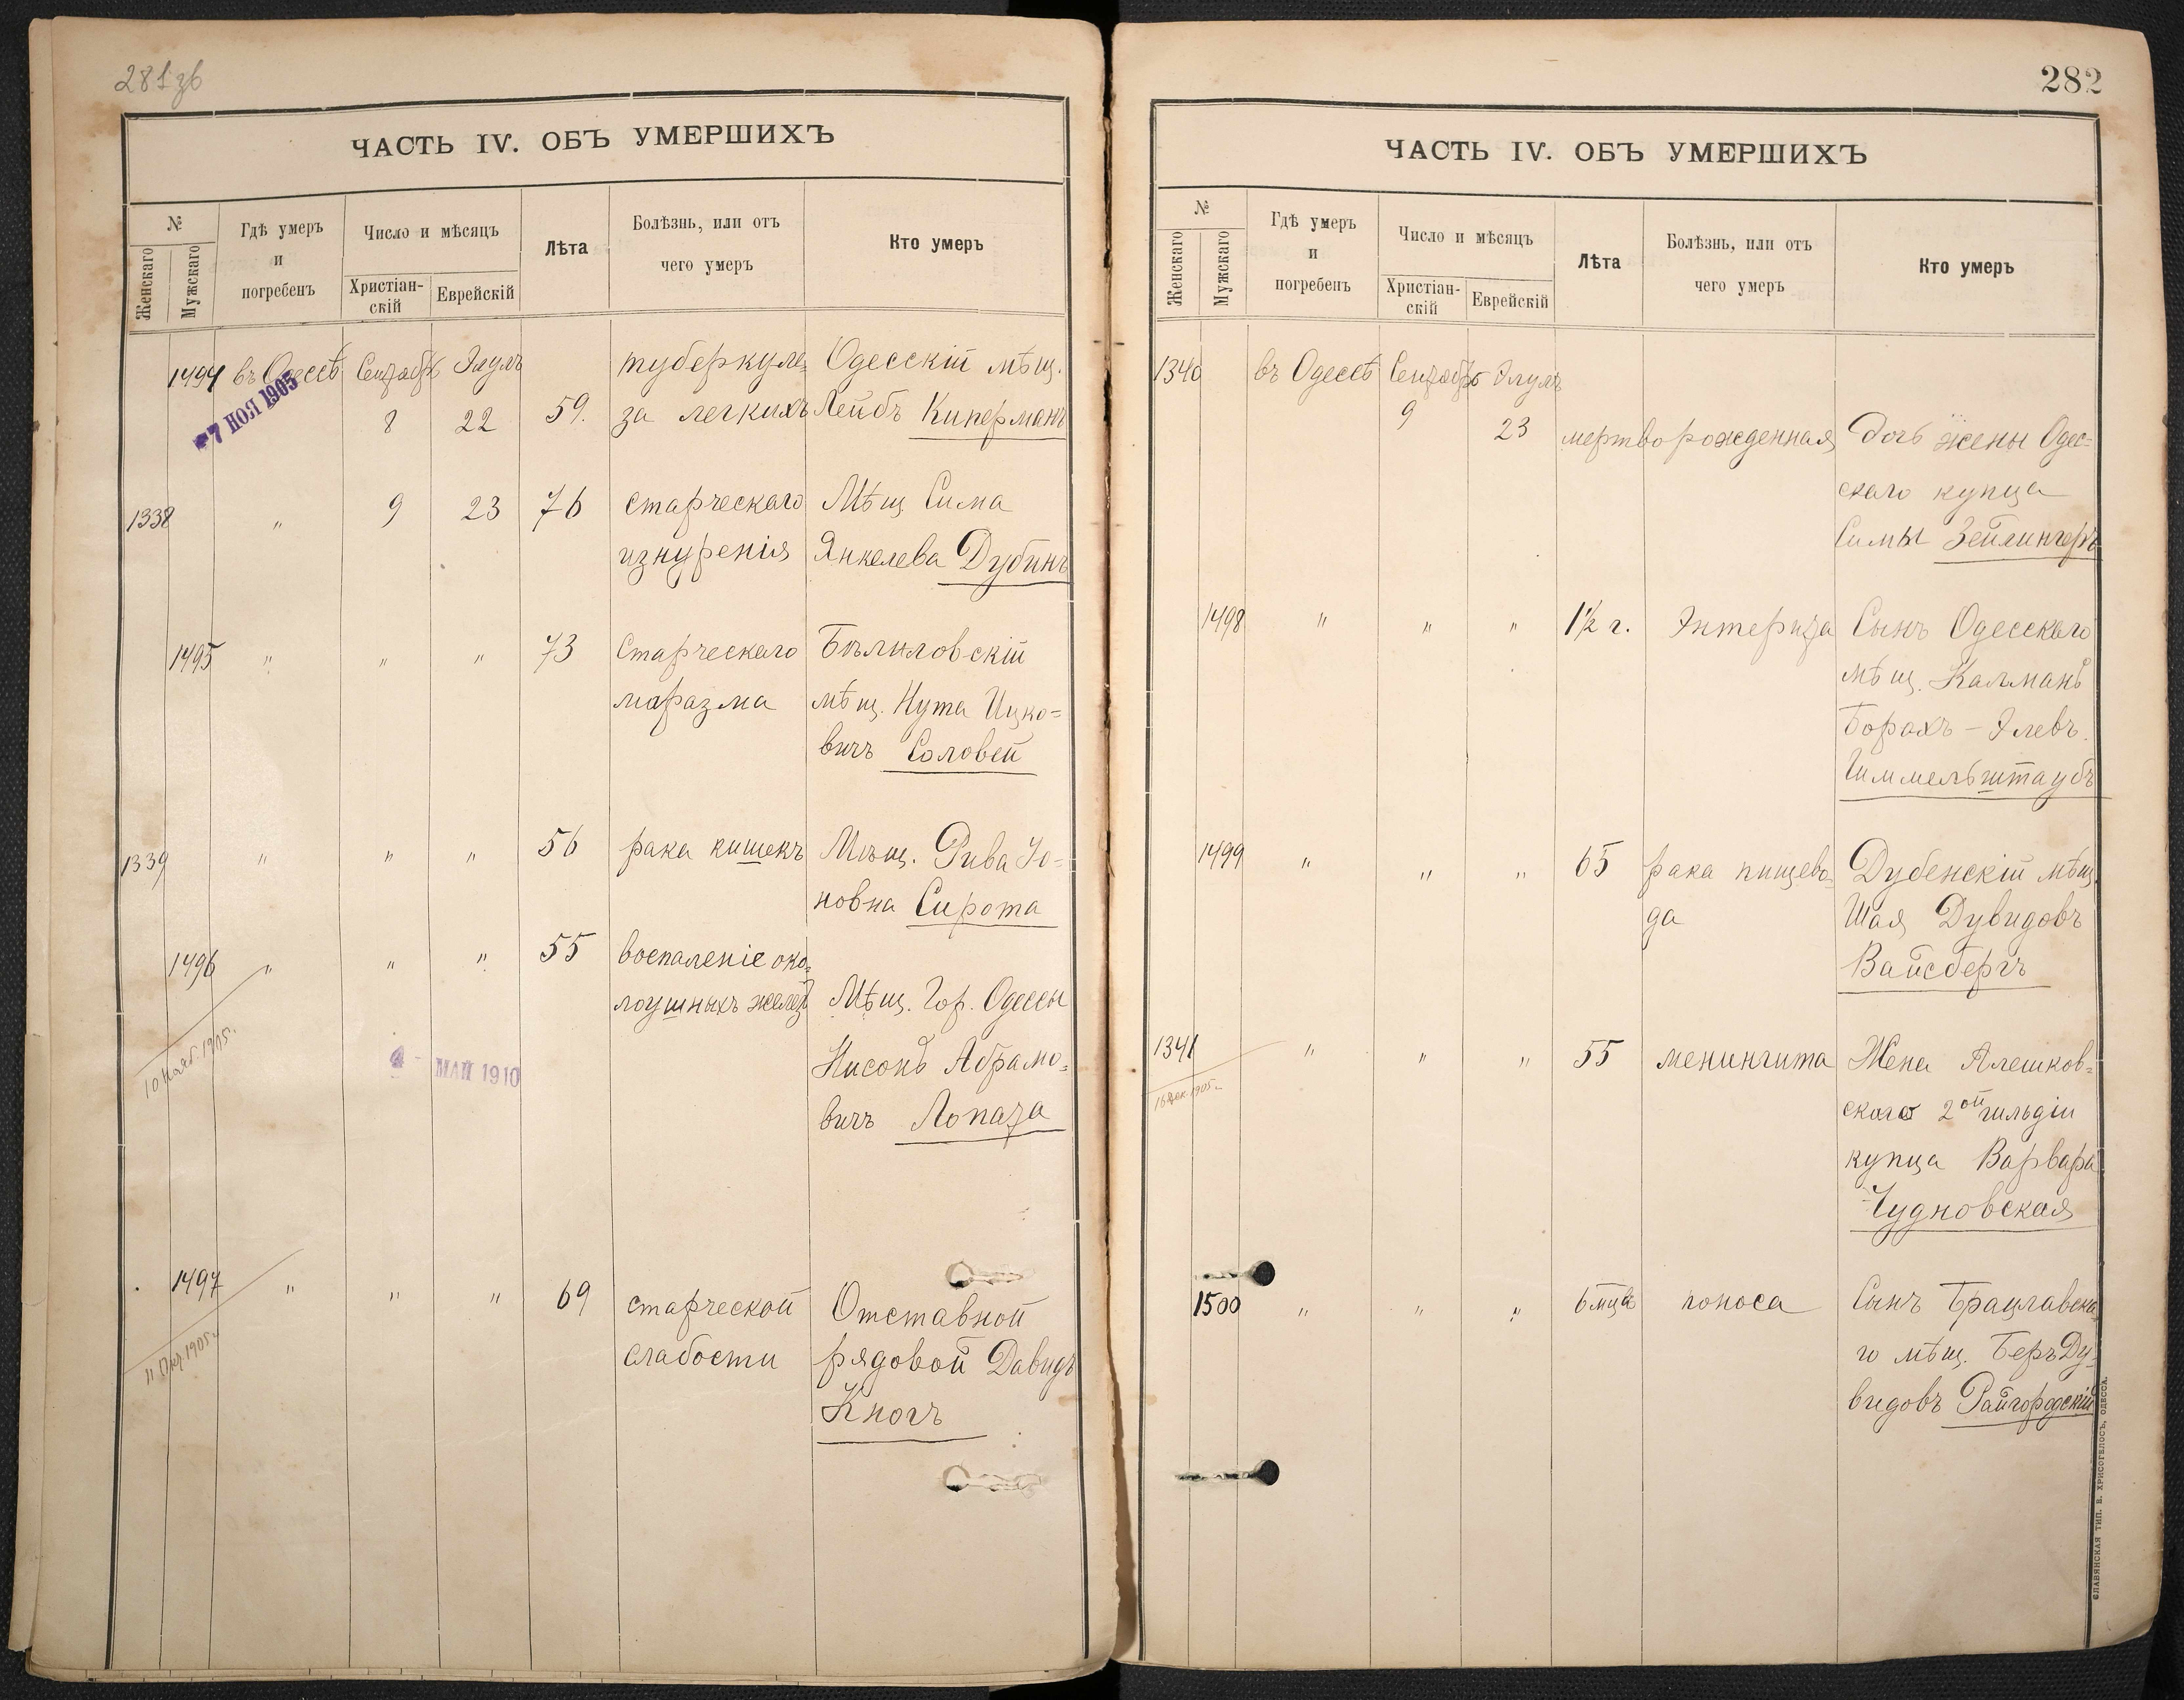 281 зв
ЧАСТЬ IV. ОБЪ УМЕРШИХЪ
№
Женскаго
Мужскаго
Гдѣ умеръ
и
погребенъ
Число и мѣсяцъ
Христіан-
скій
Еврейскій
Лѣта
Болѣзнь, или отъ
чего умеръ
Кто умеръ
1494 въ Одессѣ Сентябрь Элулъ туберкуле= Одесскій мѣщ.
7 НОЯ 1905
8 22 59. за легкихъ Лейбъ Киперманъ
1338 " 9 23 76 старческаго Мѣщ Сима
изнуренія Янкелева Дубинъ
1495 " " " 73 Старческаго Бѣлиловскій
маразма мѣщ. Нута Ицко=
вичъ Соловей
1339 " " " 56 рака кишекъ Мѣщ. Рива Іо=
новна Сирота
1496 " " " 55 воспаленіе око=
лоушныхъ желѣз Мѣщ. Гор. Одессы
Нисонъ Абрамо=
10 Нояб. 1905г.
4 - МАЙ 1910
вичъ Лопата
1497 " " " 69 старческой Отставной
слабости рядовой Давидъ
11 Окт 1905г
Кногъ
282
ЧАСТЬ IV. ОБЪ УМЕРШИХЪ
№
Женскаго
Мужскаго
Гдѣ умеръ
и
погребенъ
Число и мѣсяцъ
Христіан-
скій
Еврейскій
Лѣта
Болѣзнь, или отъ
чего умеръ
Кто умеръ
1340 въ Одессѣ Сентябрь Элулъ
9 23 мертворожденная Дочь жены Одес=
скаго купца
Симы Зейлингеръ
1498 " " " 1½ г. Энтерита Сынъ Одесскаго
мѣщ. Калманъ
Борахъ - Элевъ.
Гиммельштаубъ
1499 " " " 65 рака пищево= Дубенскій мѣщ.
да Шая Дувидовъ
Вайсбергъ
1341 " " " 55 менингита Жена Алешков=
16 Дек 1905г.
скаго 2ой гильдіи
купца Варвара
Чудновская
1500 " " " 6 мцъ поноса Сынъ Брацлавска
го мѣщ. Беръ Ду=
видовъ Райгородскій
СЛАВЯНСКАЯ ТИП. Е. ХРИСОГЕЛОСЪ, ОДЕССА.